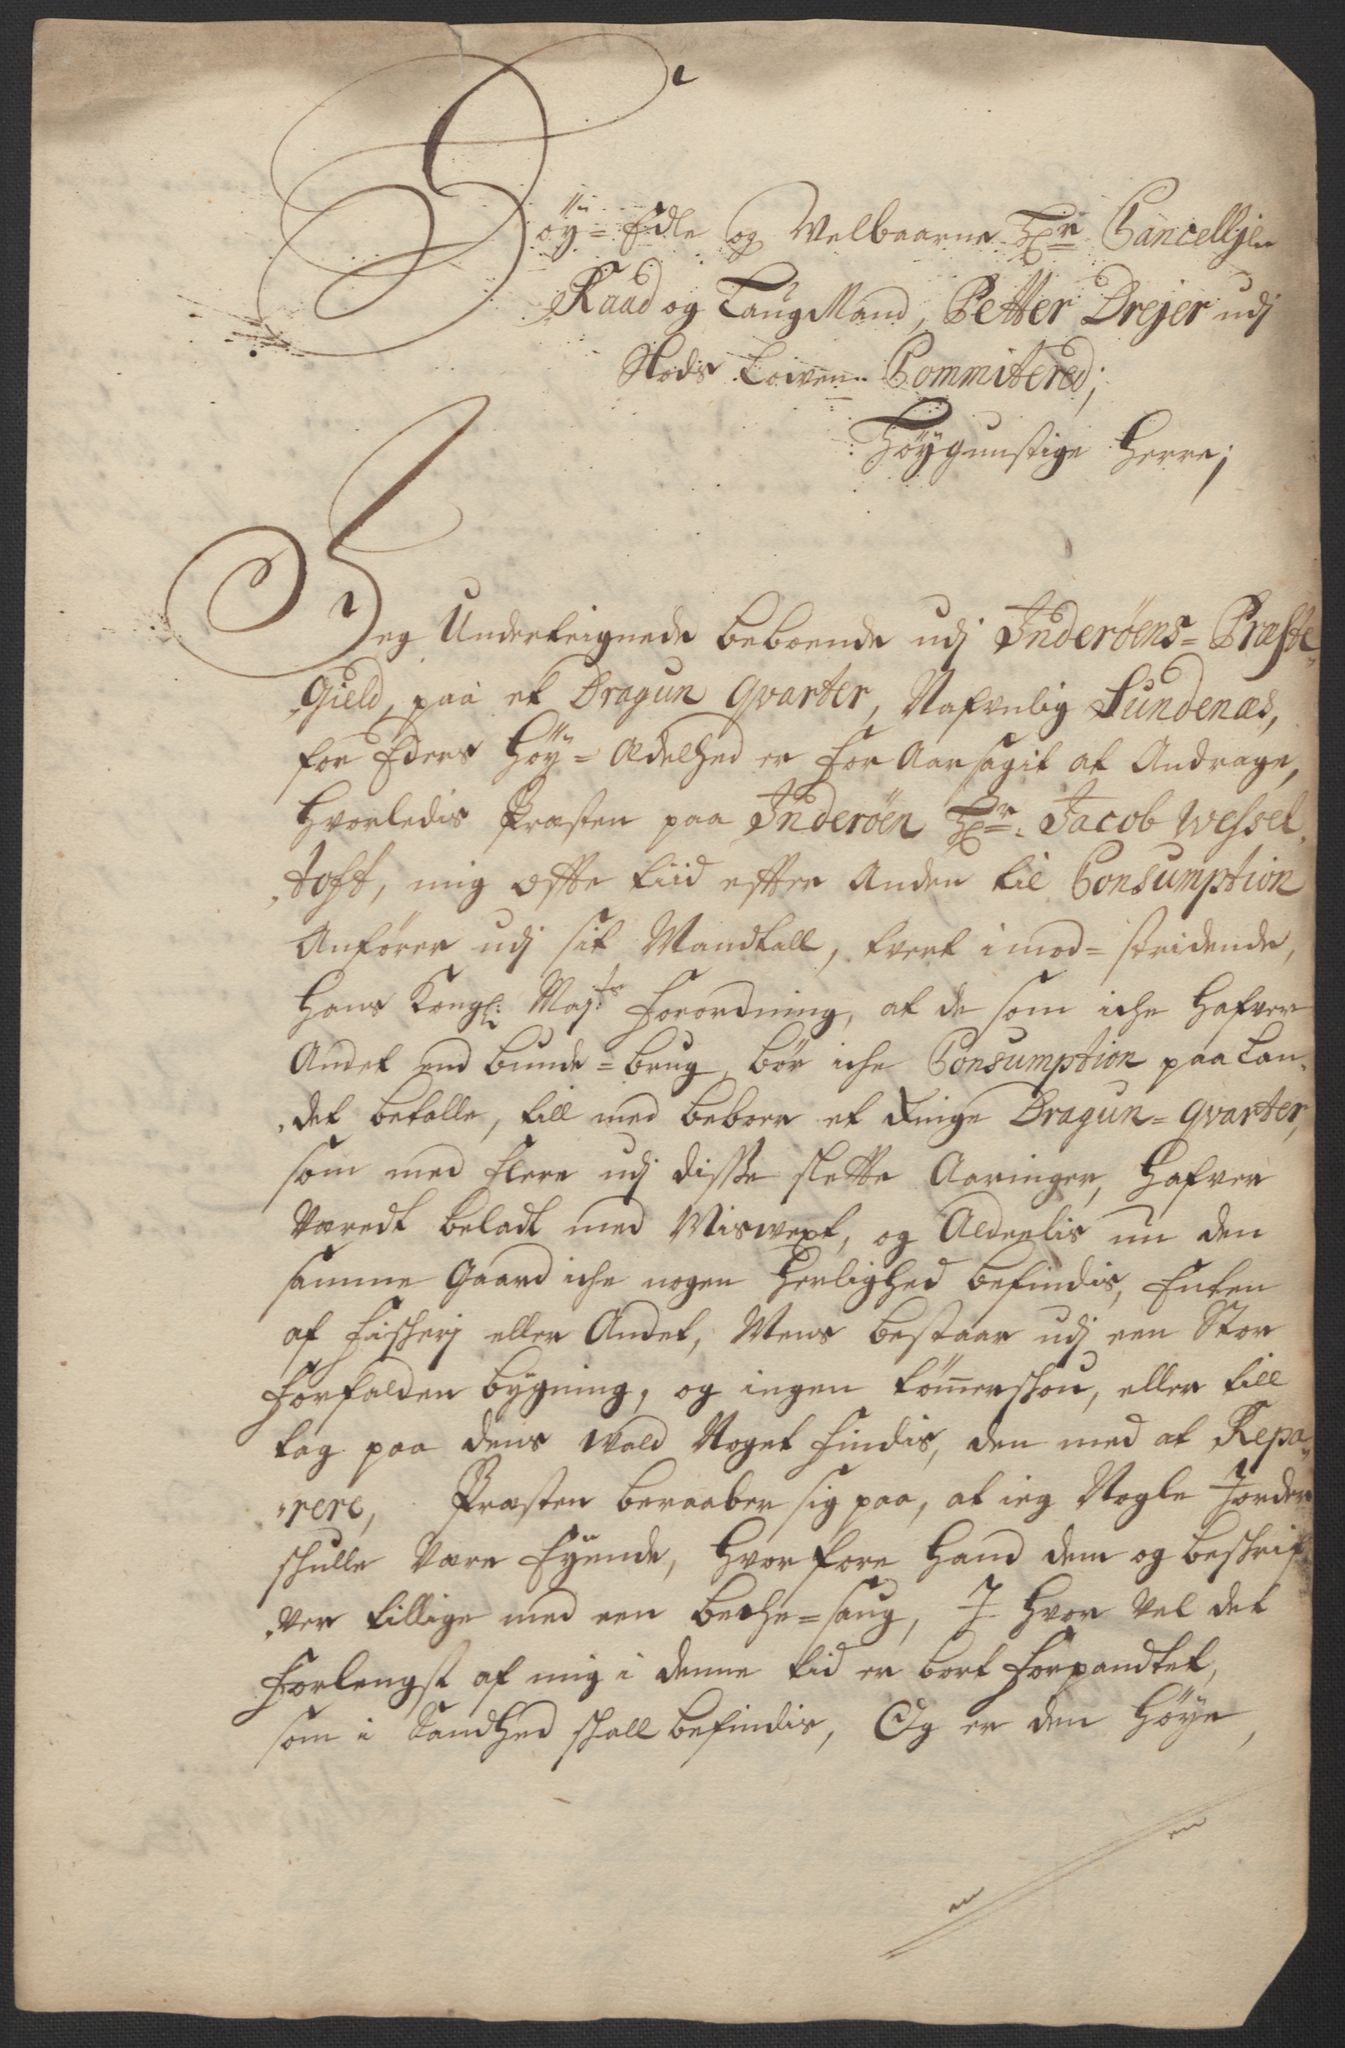 Höy-Edle og Welbaarne Hr: Cancellje
Raad og LaugMand, Petter Drejer udj
Slods Lowen Commitered;
Höygunstige Herre;
Jeg Underteignede beboende udj Inderöens-Præste-
Gield, paa et Dragun qvarter, Nafvnlig Sundenæs,
for Eders Höy-Ædelhed er for Aarsagit at Andrage,
Hvorledis Præsten paa Inderöen Hr: Jacob Wessel-
toft, mig ofte tiid efter Anden til Consumption
Anförer udj sit Mandtall, tvert imod-stridende,
Hans Kongl: Maj:ts forordning, at de som iche Hafver
Andet end bunde-brug, bör iche Consumption paa Lan-
det betalle, till med beboer et Ringe Dragun-qvarter,
som med flere udj disse slette Aaringer, Hafver
Væredt beladt med Miswext, og Aldeelis un den
samme Gaard iche nogen Herlighed befindis, Enten
af fischerj eller Andet, Mens bestaar udj een Stor
forfalden bygning, og ingen tömmerschou, eller till
tag paa dens Wald Noget findis, den med at Repa-
rere, Præsten beraaber sig paa, at ieg Nogle Jorder
schulle være Eyende, Hvorfore Hand dem og beschrif-
ver tillige med een beche-saug, I Hvor vel det
forlengst af mig i denne tid er bort forpandtet,
som i Sandhed schall befindis, Og er den Höye